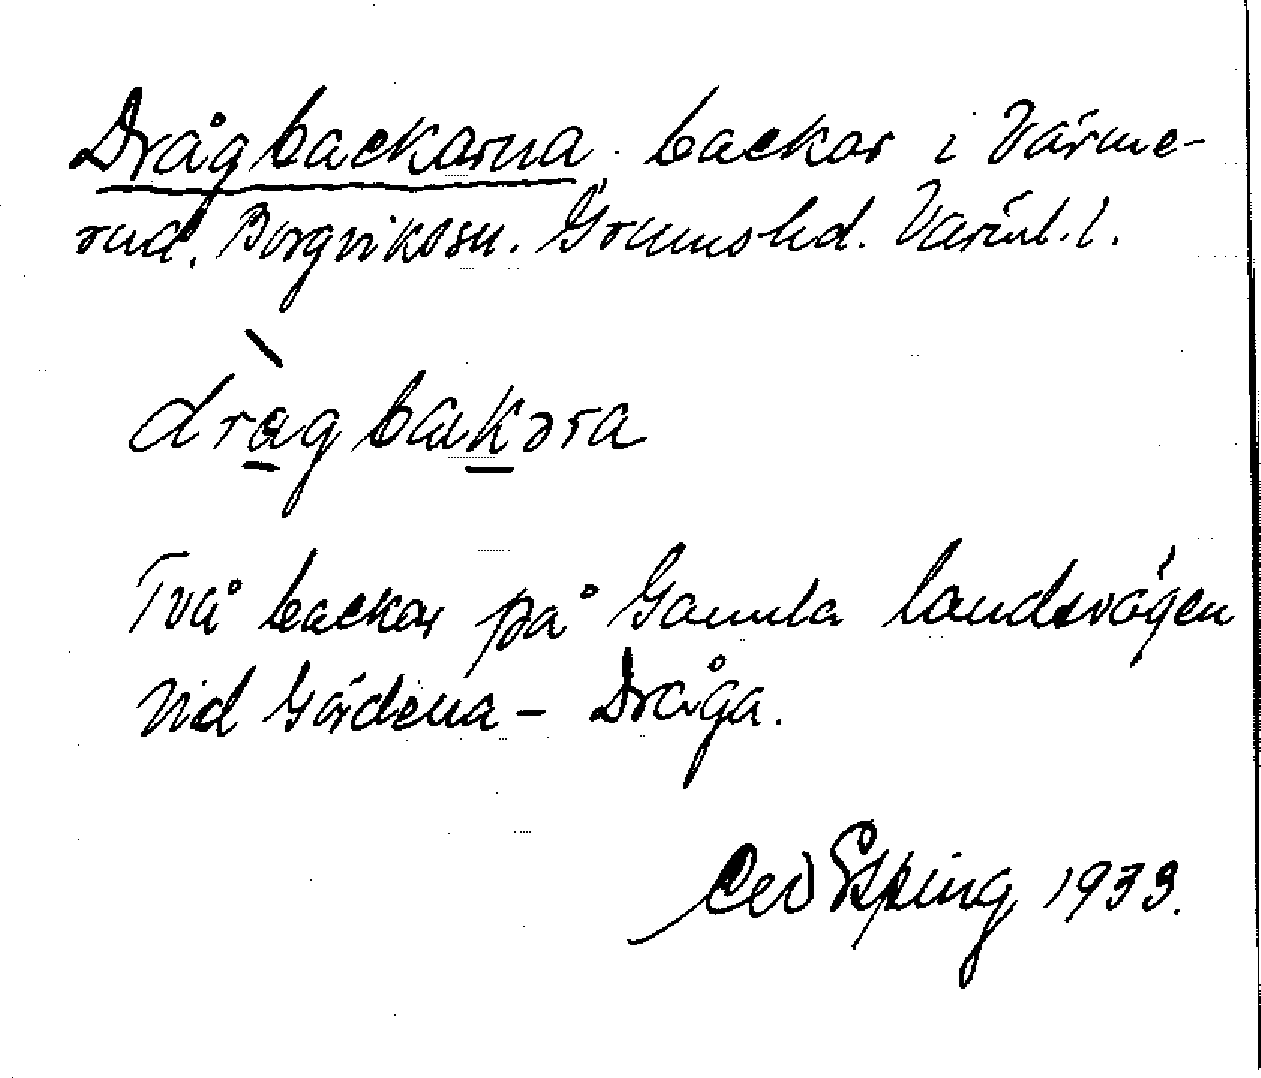 Drågbackarna backar i Värme-
rud. Borgvikssn. Grumshd. Värml. l.
dràgbakəra
Två backar på Gamla landsvägen
vid Gärdena - Dråga.
Esping 1933.